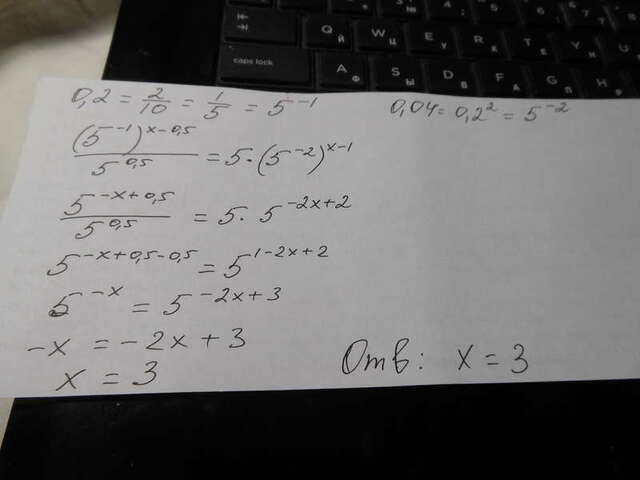 Q Й W Ц E У R К T Е Y Н U
caps lock A Ф S Ы D В F А G П
0,2 = 2/10 = 1/5 = 5^-1 0,04 = 0,2^2 = 5^-2
(5^-1)^x-0,5 / 5^0,5 = 5·(5^-2)^x-1
5^-x+0,5 / 5^0,5 = 5·5^-2x+2
5^-x+0,5-0,5 = 5^1-2x+2
5^-x = 5^-2x+3
-x = -2x+3
x = 3 Отв: x = 3